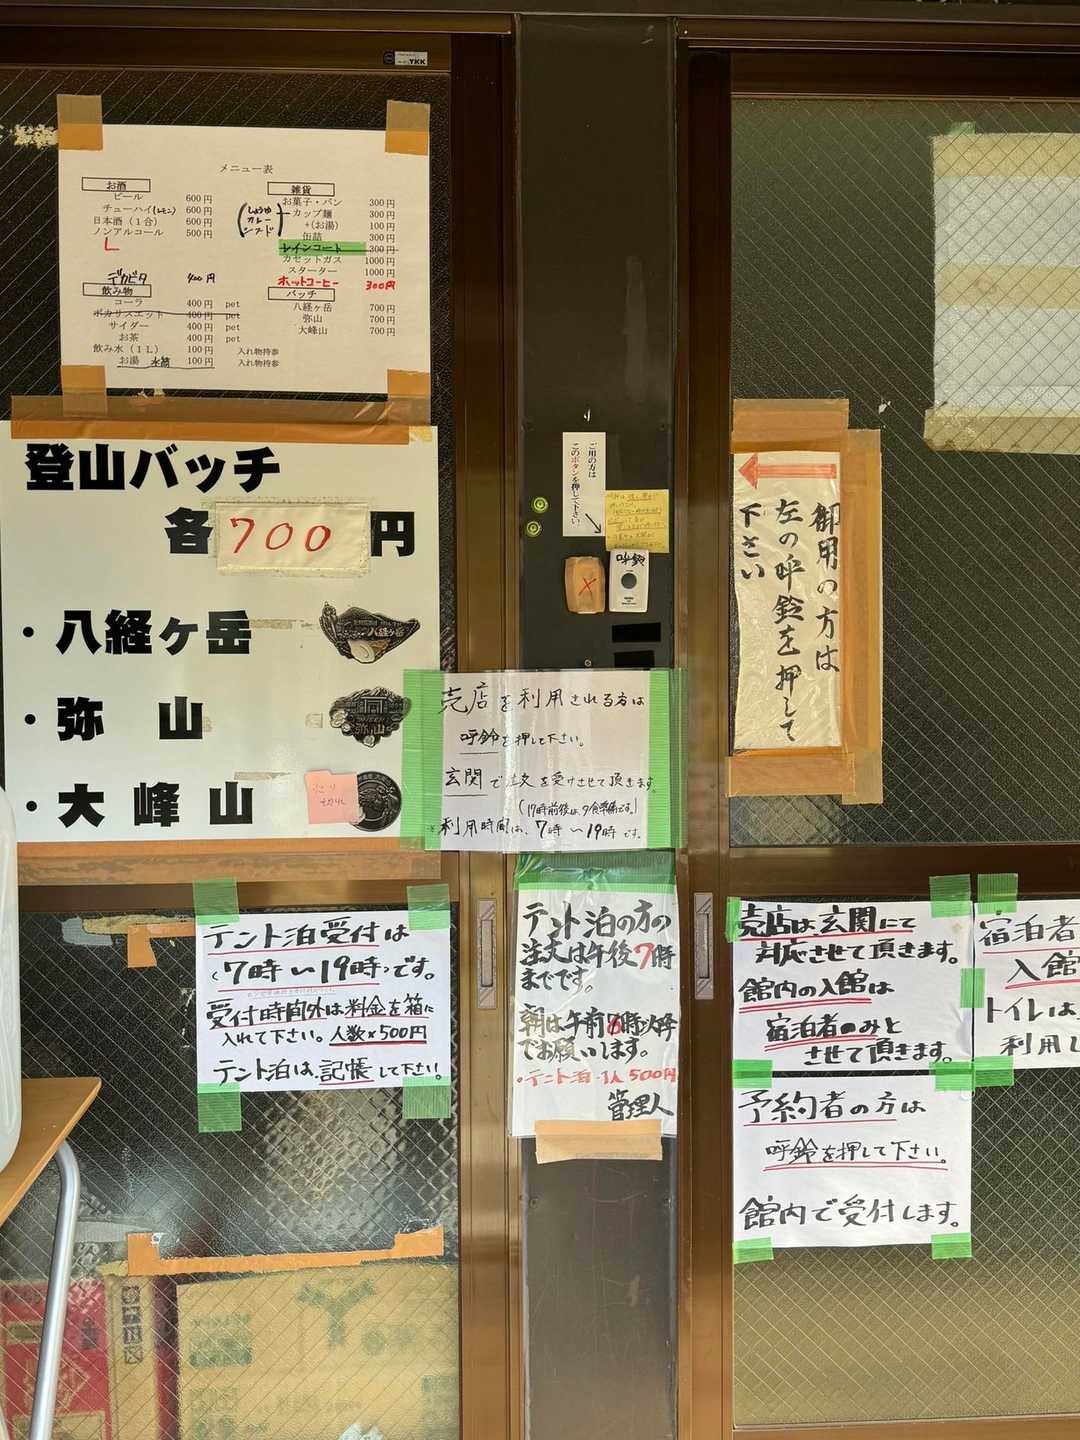 YKK
メニュー表
お酒
ビール 600円
チューハイ(レモン) 600円
日本酒(1合) 600円
ノンアルコール 500円
デカビタ 400円
飲み物
コーラ 400円 pet
ポカリスエット 400円 pet
サイダー 400円 pet
お茶 400円 pet
飲み水(1L) 100円 入れ物持参
お湯 水筒 100円 入れ物持参
雑貨
お菓子・パン 300円
カップ麺 300円
(しょうゆ
カレー
シーフド)
+(お湯) 100円
缶詰 300円
レインコート 300円
カセットガス 1000円
スターター 1000円
ホットコーヒー 300円
バッチ
八経ヶ岳 700円
弥山 700円
大峰山 700円
登山バッチ
各700円
・八経ヶ岳
・弥 山
・大峰山
ご用の方は
このボタンを押して下さい。
呼鈴
御用の方は
左の呼鈴を押して
下さい
売店を利用される方は
呼鈴を押して下さい。
玄関で注文を受けさせて頂きます
(17時前後は夕食準備です。)
※利用時間は、7時〜19時です。
テント泊受付は
(7時〜19時)です。
受付時間外は料金を箱に
入れて下さい。人数×500円
テント泊は、記帳して下さい。
テント泊の方の
注文は午後7時
までです。
朝は午前6時以降
でお願いします。
・テント泊 1人500円
管理人
売店は玄関にて
対応させて頂きます。
館内の入館は
宿泊者のみと
させて頂きます。
宿泊者
入館
トイレは、
利用し
予約者の方は
呼鈴を押して下さい。
館内で受付します。